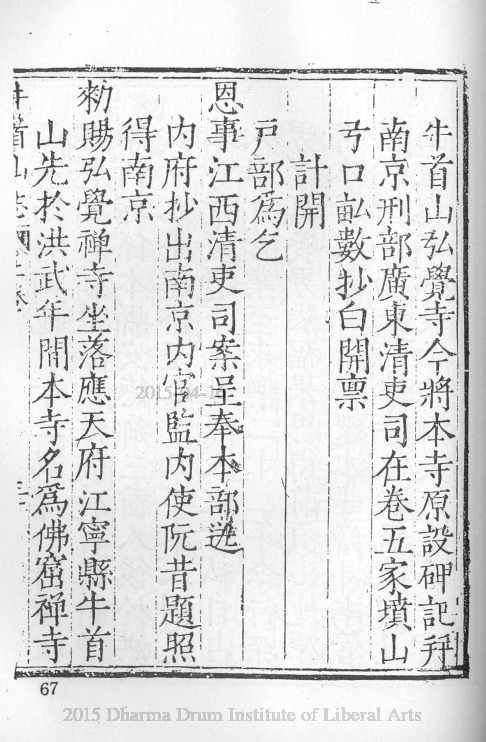 牛首山弘覺寺今將本寺原設碑記幷
南京刑部廣東清吏司在卷五家墳山
字口畝數抄白開禀
計開
戸部爲乞
恩事江西清吏司案呈奉本部送
内府抄出南京内官監内使阮昔題照
得南京
勑賜弘覺禅寺坐落應天府江寧縣牛首
山先於洪武年間本寺名爲佛窟禅寺
牛首山志
67
2015 Dharma Drum Institute of Liberal Arts